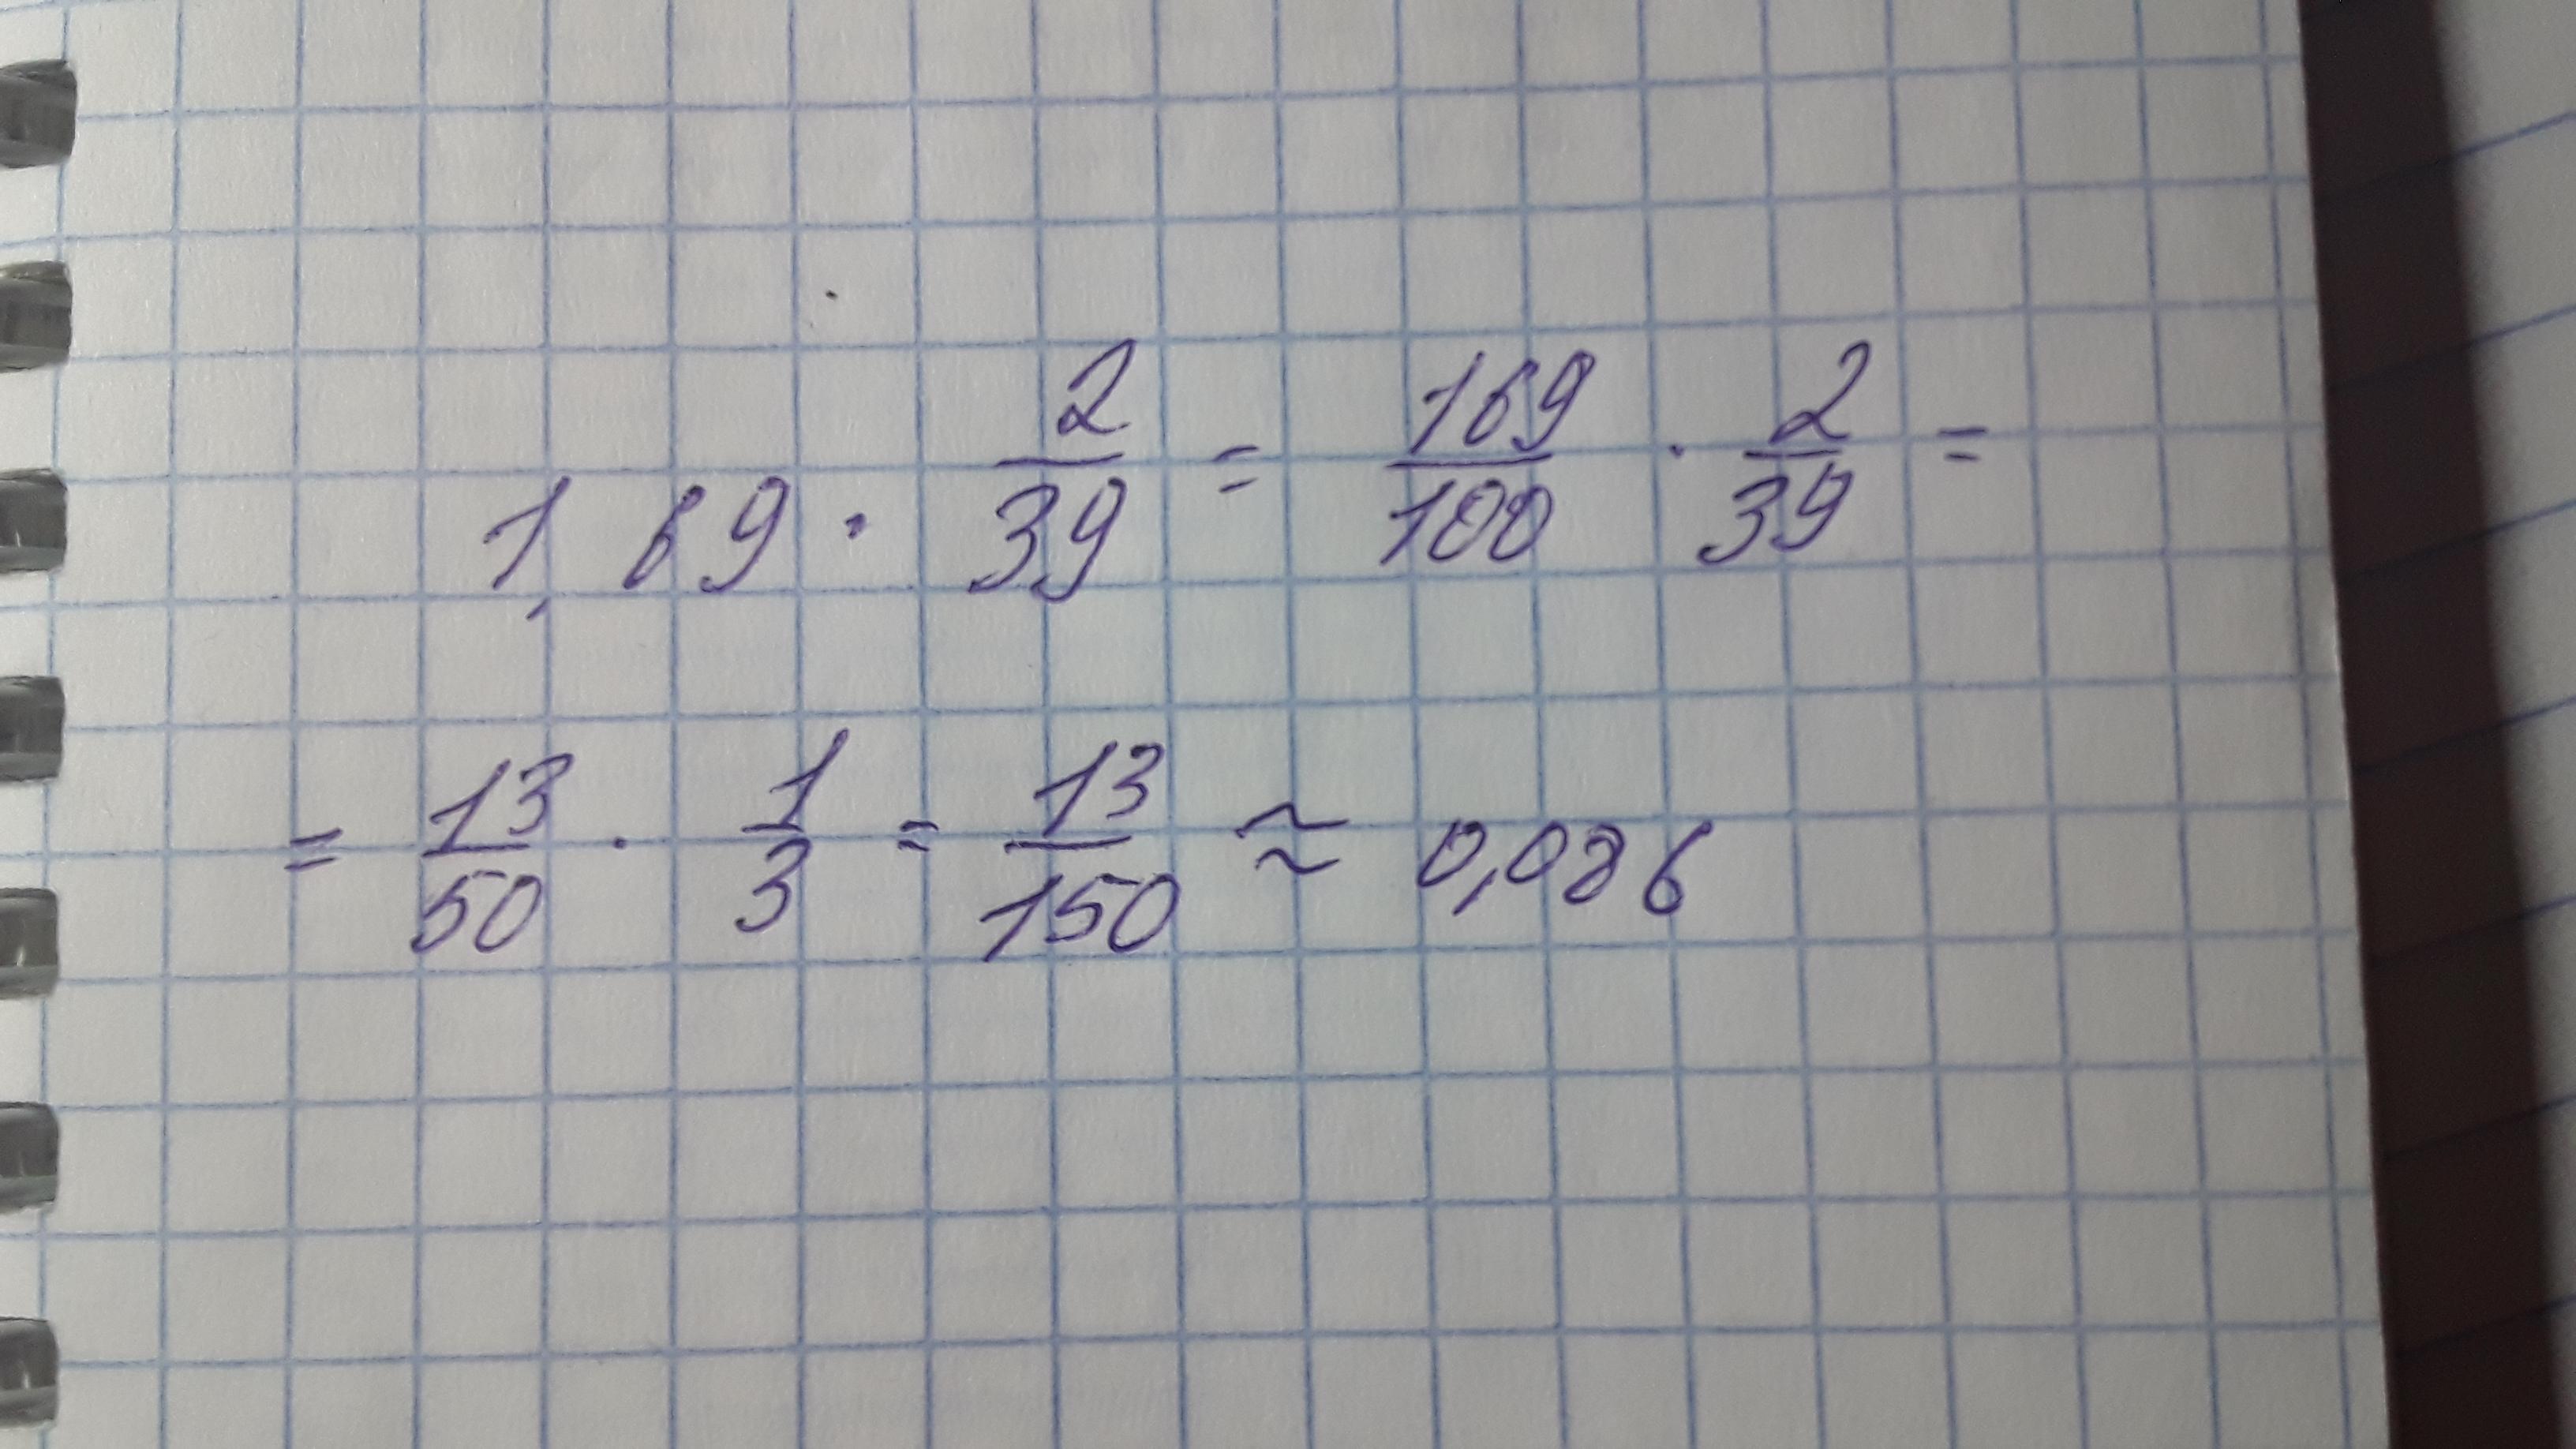 1,69 · 2/39 = 169/100 · 2/39 =
= 13/50 · 1/3 = 13/150 ≈ 0,086